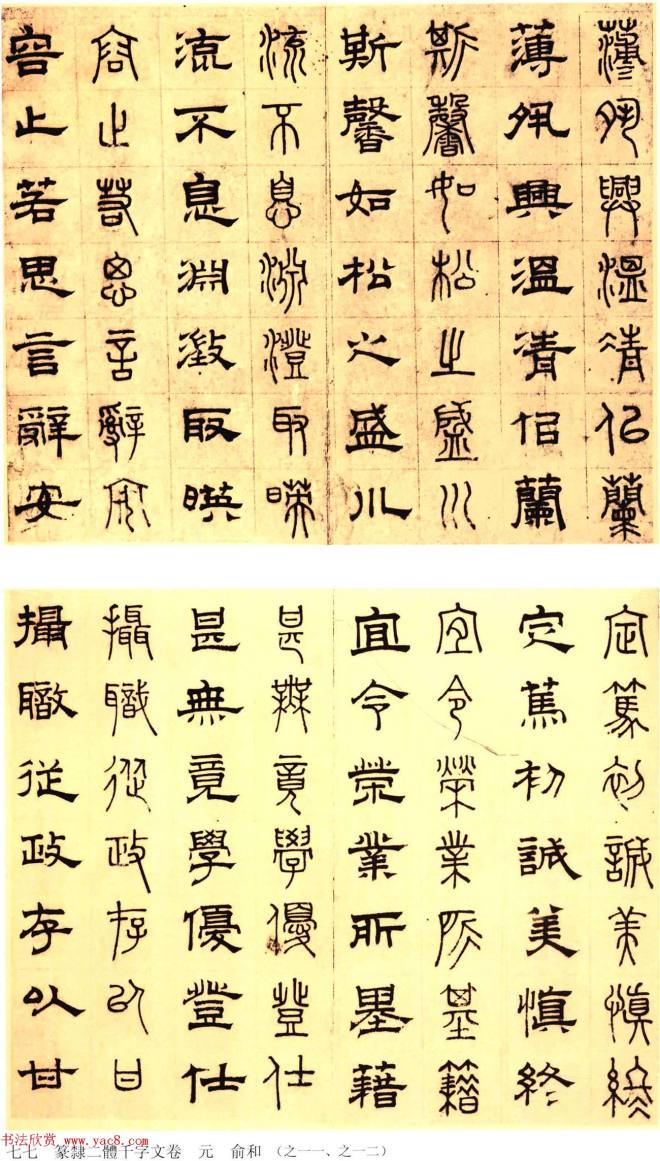 薄夙興溫凊侣蘭
薄夙興溫清侣蘭
斯馨如松之盛川
斯馨如松之盛川
流不息淵澄取暎
流不息淵澂取暎
容止若思言辭安
容止若思言辭安
定篤初誠美慎終
定篤初誠美慎終
宜令榮業所基籍
宜令榮業所基籍
甚無竟學優登仕
甚無竟學優登仕
攝職從政存以甘
攝職從政存以甘
书法欣赏 www.yac8.com
七七 篆隸二體千字文卷 元 俞和 (之一一、之一二)